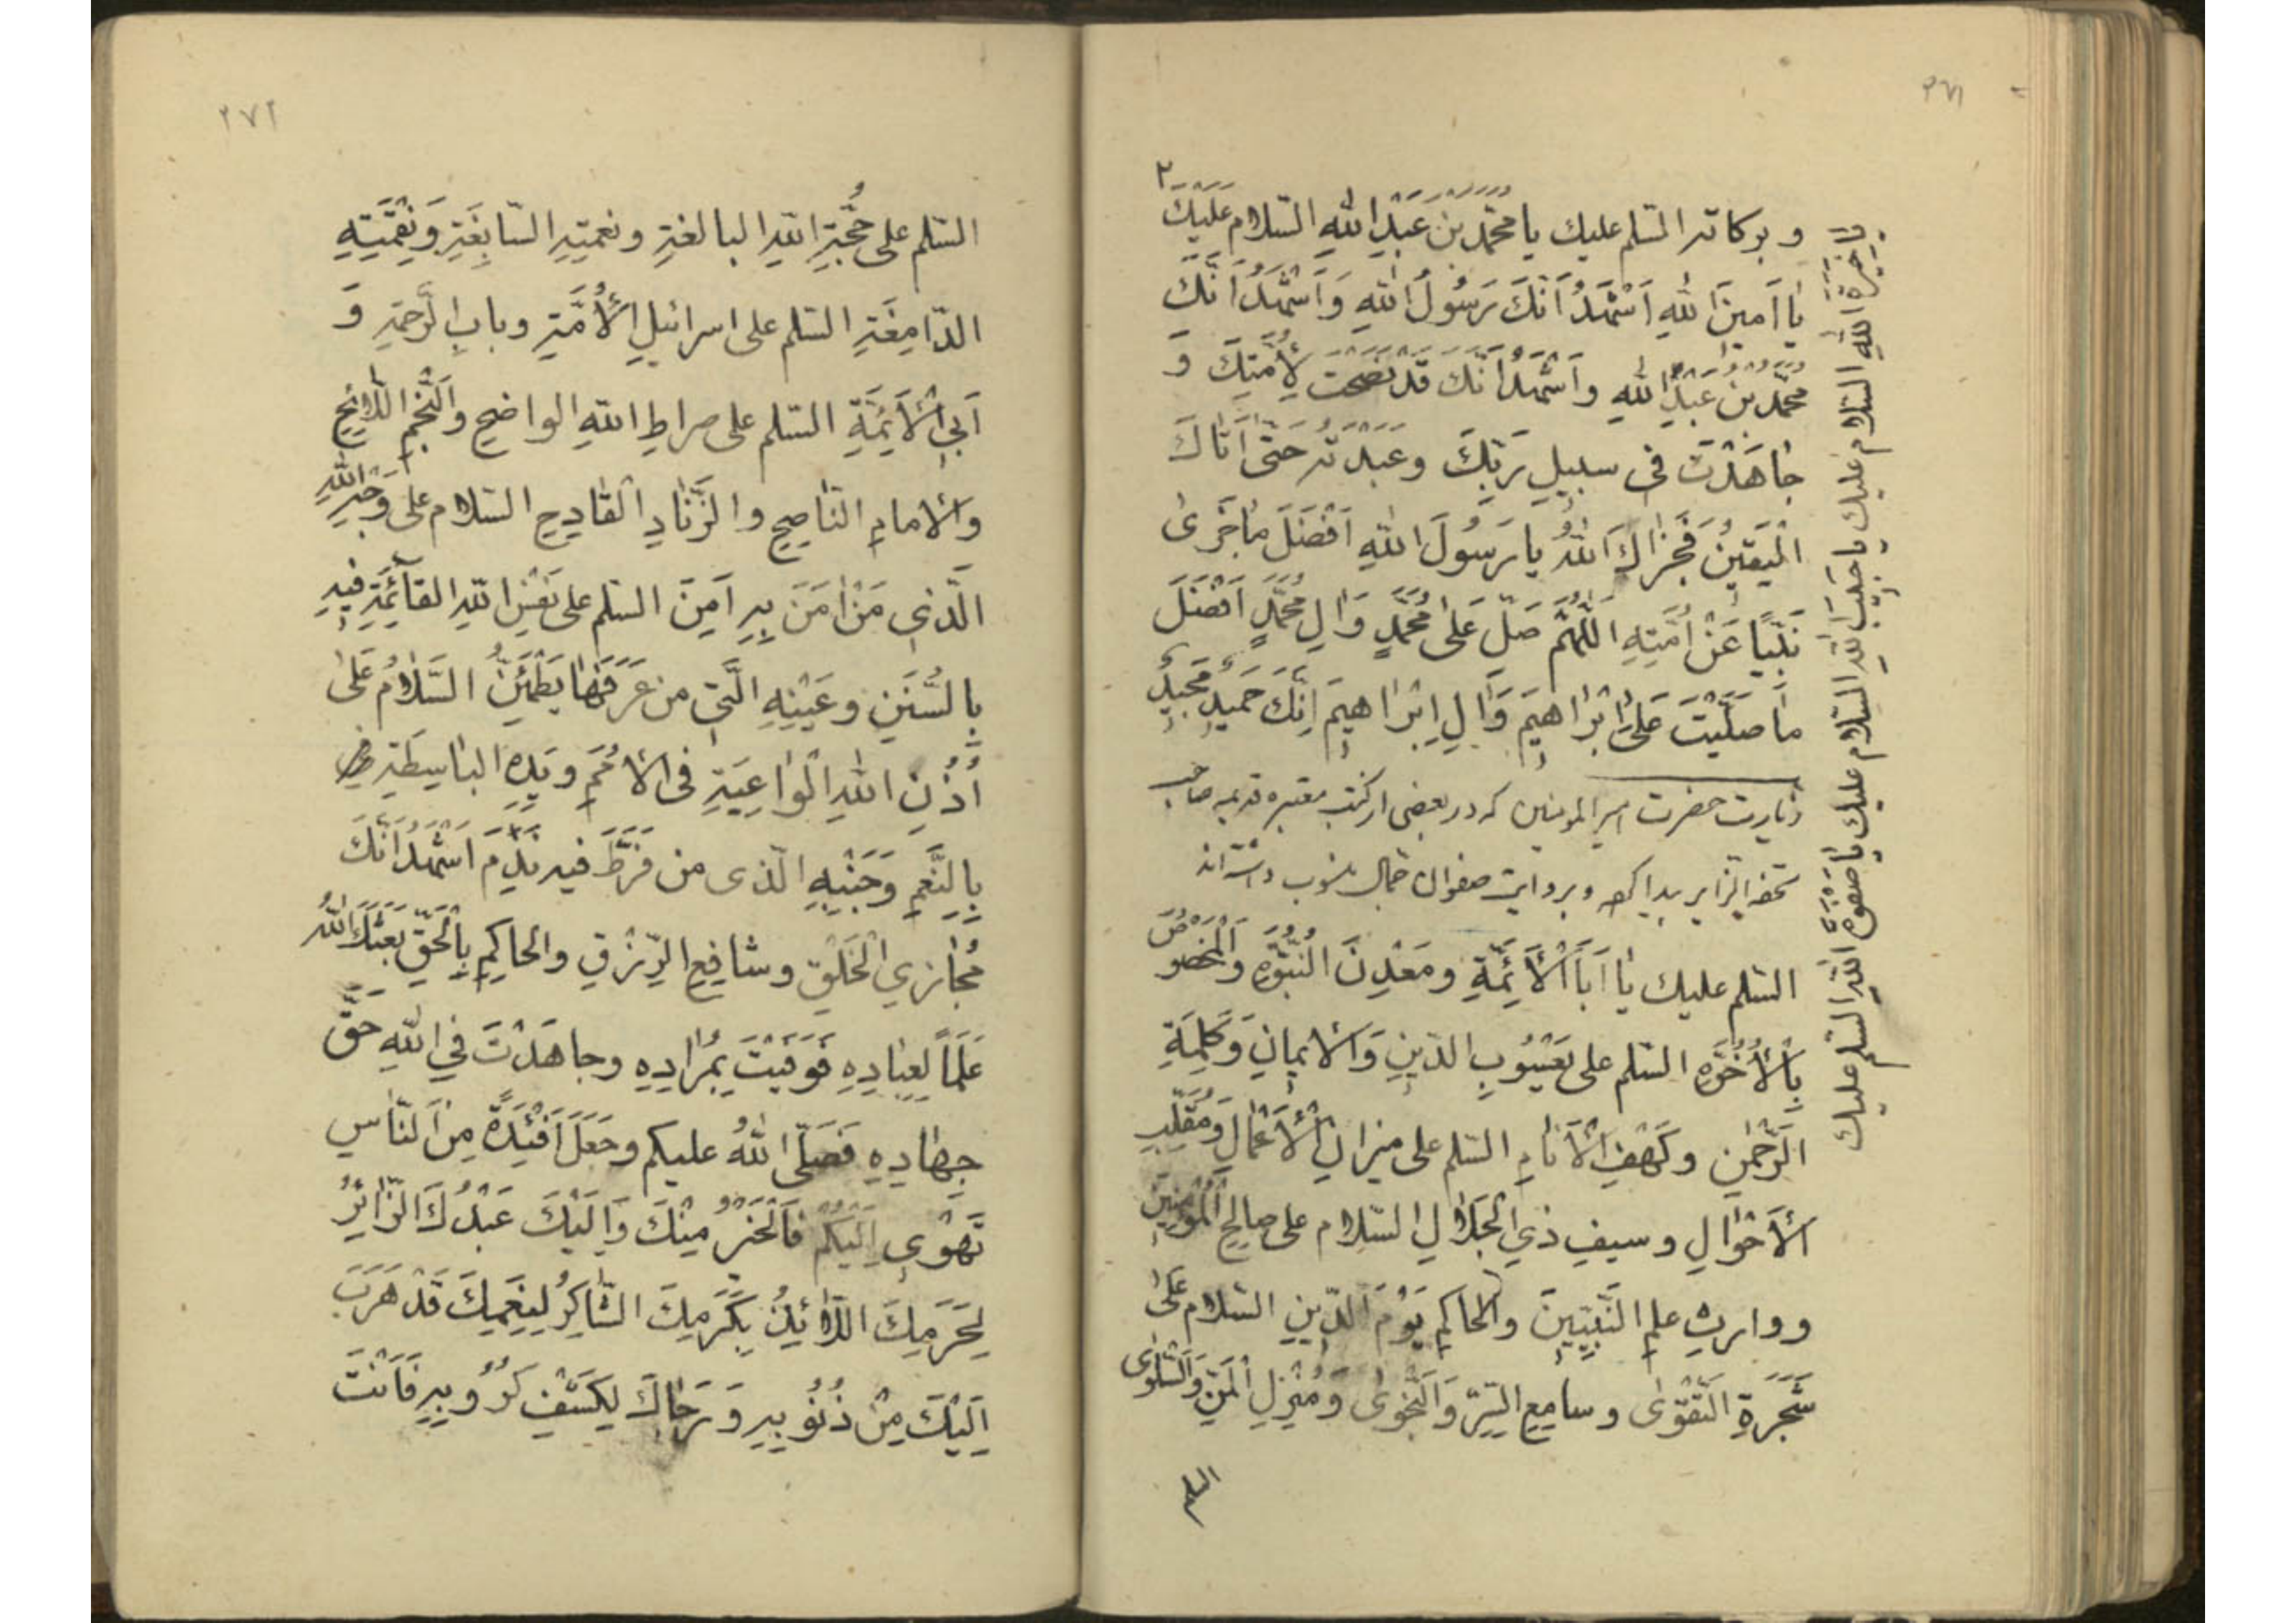 ٢٧١
٢
و بركاته السّلم عليك يا محمّد بن عَبْدِ اللهِ السّلام عَلَيْكَ
يا خِيَرَةَ اللهِ السّلام عليك يا حبيبَ اللهِ السّلام عليك يا صَفْوَةَ اللهِ السّلم عليك
يا اَمينَ اللهِ اَشْهَدُ اَنَّكَ رَسُولُ اللهِ وَ اَشْهَدُ اَنَّكَ
محمّد بْنُ عَبْدِ اللهِ و اَشْهَدُ اَنَّكَ قَدْ نَصَحْتَ لِاُمَّتِكَ وَ
جاهَدْتَ فى سبيلِ رَبِّكَ وعَبَدْتَهُ حَتّى اَتاكَ
الْيَقينُ فَجَزاكَ اللهُ يا رَسُولَ اللهِ اَفْضَلَ ما جَزى
نَبِيًّا عَنْ اُمَّتِهِ اَللّهُمَّ صَلِّ عَلى مُحَمَّدٍ وَ الِ مُحَمَّدٍ اَفْضَلَ
ما صَلَّيْتَ عَلى اِبْراهيمَ وَ الِ اِبْراهيمَ اِنَّكَ حَميدٌ مَجيدٌ
زيارت حضرت امير المومنين كه در بعضى از كتب معتبره قديمه صاحب
تحفه الزاير پيدا كرده و بروايت صفوان جمال منسوب داشته اند
السّلم عليك يا اَبَا الْاَئِمَّةِ ومَعْدِنَ النُّبُوَّةِ وَ الْمَخْصُوصَ
بِالْاُخُوَّةِ السّلم على يَعْسُوبِ الدّينِ وَ الْايمانِ وَ كَلِمَةِ
الرَّحْمنِ وكَهْفِ الْاَنامِ السّلم على ميزانِ الْاَعْمالِ وَ مُقَلِّبِ
الْاَحْوالِ وسيفِ ذي الْجَلالِ السّلام على صالِحِ الْمُؤْمِنينَ
ووارثِ علمِ النَّبِيّينَ والْحاكِمِ يَوْمَ الدّينِ السّلام عَلى
شَجَرَةِ التَّقْوى وسامِعِ السِّرِّ وَ النَّجْوى وَ مُنْزِلِ الْمَنِّ وَ السَّلْوى
السلم
٢٧٢
السّلم على حُجَّةِ اللهِ البالغةِ ونعمتِهِ السّابِغَةِ وَ نِقْمَتِهِ
الدّامِغَةِ السّلم على اسرائيلِ الْاُمَّةِ وبابِ الرَّحمةِ وَ
اَبِى الْاَئِمَّةِ السّلم على صراطِ اللهِ الواضحِ والنَّجْمِ اللّائِحِ
والامامِ النّاصِحِ والزِّنادِ الْقادِحِ السّلام على وَجْهِ اللهِ
الَّذي مَنْ امَنَ بِهِ اَمِنَ السّلم على نَفْسِ اللهِ القآئِمَةِ فيهِ
بِالسُّنَنِ وعَيْنِهِ الَّتي من عَرَفَها يَطْمَئِنُّ السَّلامُ عَلى
اُذُنِ اللهِ الْواعِيَةِ فى الْاُمَمِ ويَدِهِ الباسِطَةِ
بِالنِّعَمِ وَ جَنْبِهِ الّذى من فَرَّطَ فيه نَدِمَ اَشْهَدُ اَنَّكَ
مُجازِي الْخَلْقِ وشافِعِ الرِّزْقِ والحاكِمِ بِالْحَقِّ بَعَثَكَ اللهُ
عَلَماً لِعِبادِهِ فَوَفَيْتَ بِمُرادِهِ وجاهَدْتَ فِي اللهِ حَقَّ
جِهادِهِ فَصَلَّى اللهُ عليكم وجَعَلَ اَفْئِدَةً مِنَ النّاسِ
تَهْوي اِلَيْكُمْ فَالْخَيْرُ مِنْكَ وَ اِلَيْكَ عَبْدُكَ الزّائِرُ
لِحَرَمِكَ اللّائِذُ بِكَرَمِكَ الشّاكِرُ لِنِعَمِكَ قَدْ هَرَبَ
اِلَيْكَ مِنْ ذُنُوبِهِ وَ رَجاكَ لِكَشْفِ كُرُوبِهِ فَاَنْتَ